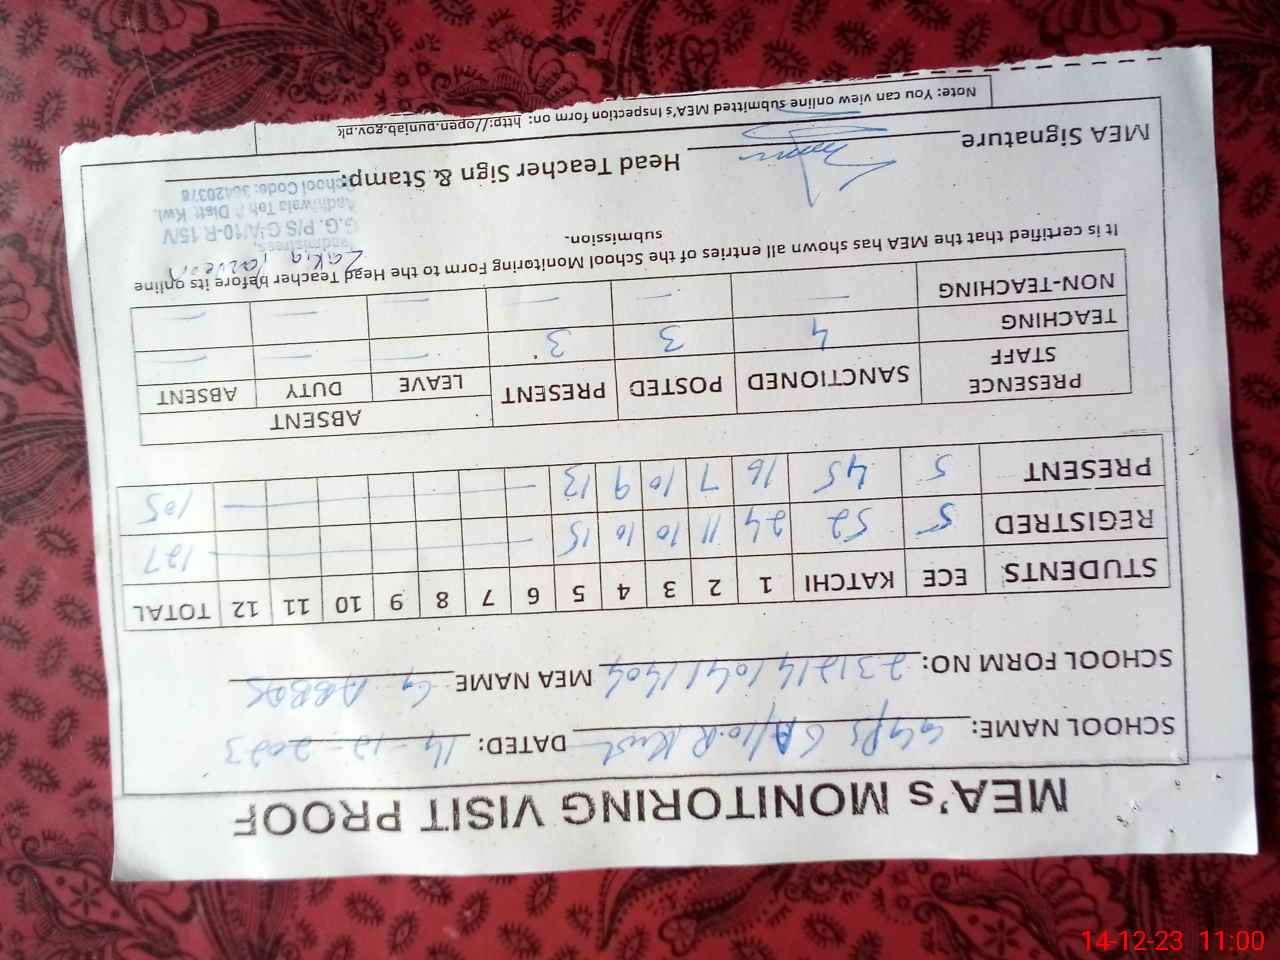 MEA's MONITORING VISIT PROOF
SCHOOL NAME: GGPS 6A/10.R Kwl DATED: 14-12-2023
SCHOOL FORM NO: 231214104 MEA NAME G ABBAS
STUDENTS ECE KATCHI 1 2 3 4 5 6 7 8 9 10 11 12 TOTAL
REGISTRED 5 52 24 11 10 10 15 — 127
PRESENT 5 45 16 7 10 9 13 — 105
PRESENCE STAFF SANCTIONED POSTED PRESENT ABSENT
LEAVE DUTY ABSENT
TEACHING 4 3 3 — — —
NON-TEACHING — — — — — —
It is certified that the MEA has shown all entries of the School Monitoring Form to the Head Teacher before its online
submission.
Zakia Parveen
Headmistress
G.G. P/S 6-A/10-R 15/V
Teh & Distt: Kwl.
School Code: 36420378
MEA Signature Head Teacher Sign & Stamp:
Note: You can view online submitted MEA's Inspection form on: http://open.punjab.gov.pk
14-12-23 11:00